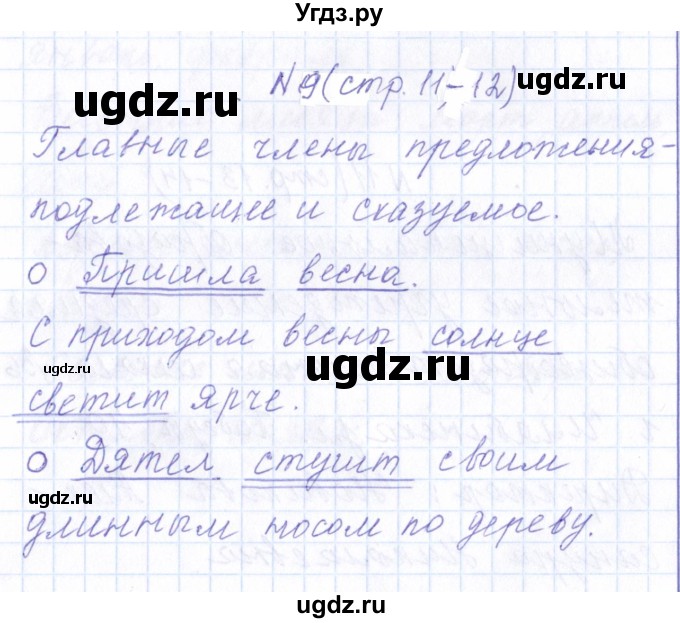 Угдз.ру
ugdz.ru
N9(стр. 11-12)
Главные члены предложения-
подлежащее и сказуемое.
О Пришла весна.
С приходом весны солнце
ugdz.ru
ugdz.ru
светит ярче.
О Дятел стучит своим
ugdz.ru
длинным носом по дереву.
ugdz.ru
ugdz.ru